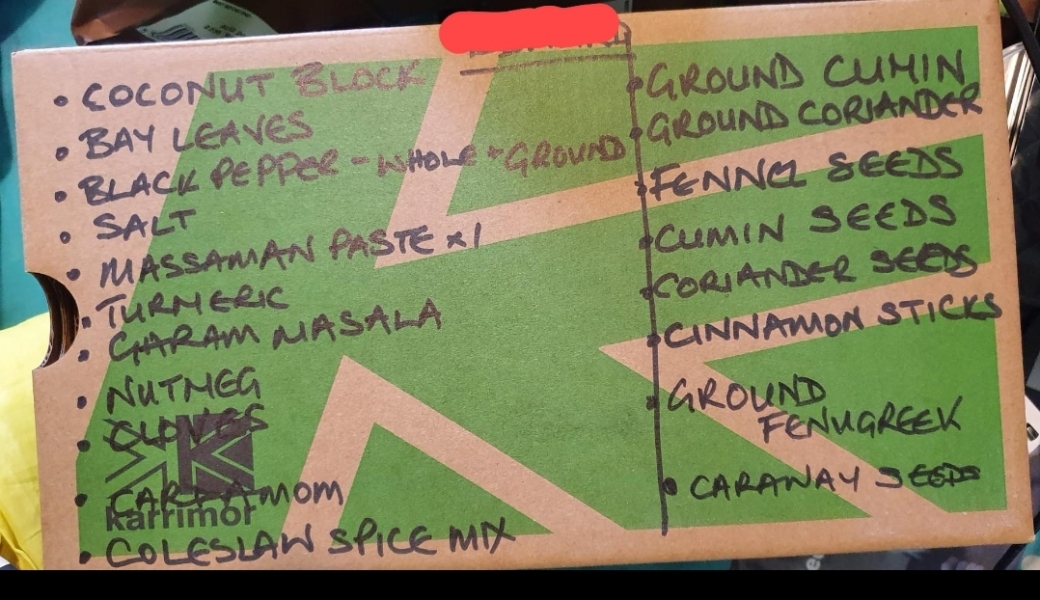 • COCONUT BLOCK
• BAY LEAVES
• BLACK PEPPER - WHOLE + GROUND
• SALT
• MASSAMAN PASTE x1
• TURMERIC
• GARAM MASALA
• NUTMEG
• CLOVES
• CARDAMOM
karrimor
• COLESLAW SPICE MIX
• GROUND CUMIN
• GROUND CORIANDER
• FENNEL SEEDS
• CUMIN SEEDS
• CORIANDER SEEDS
• CINNAMON STICKS
• GROUND
FENUGREEK
• CARAWAY SEEDS